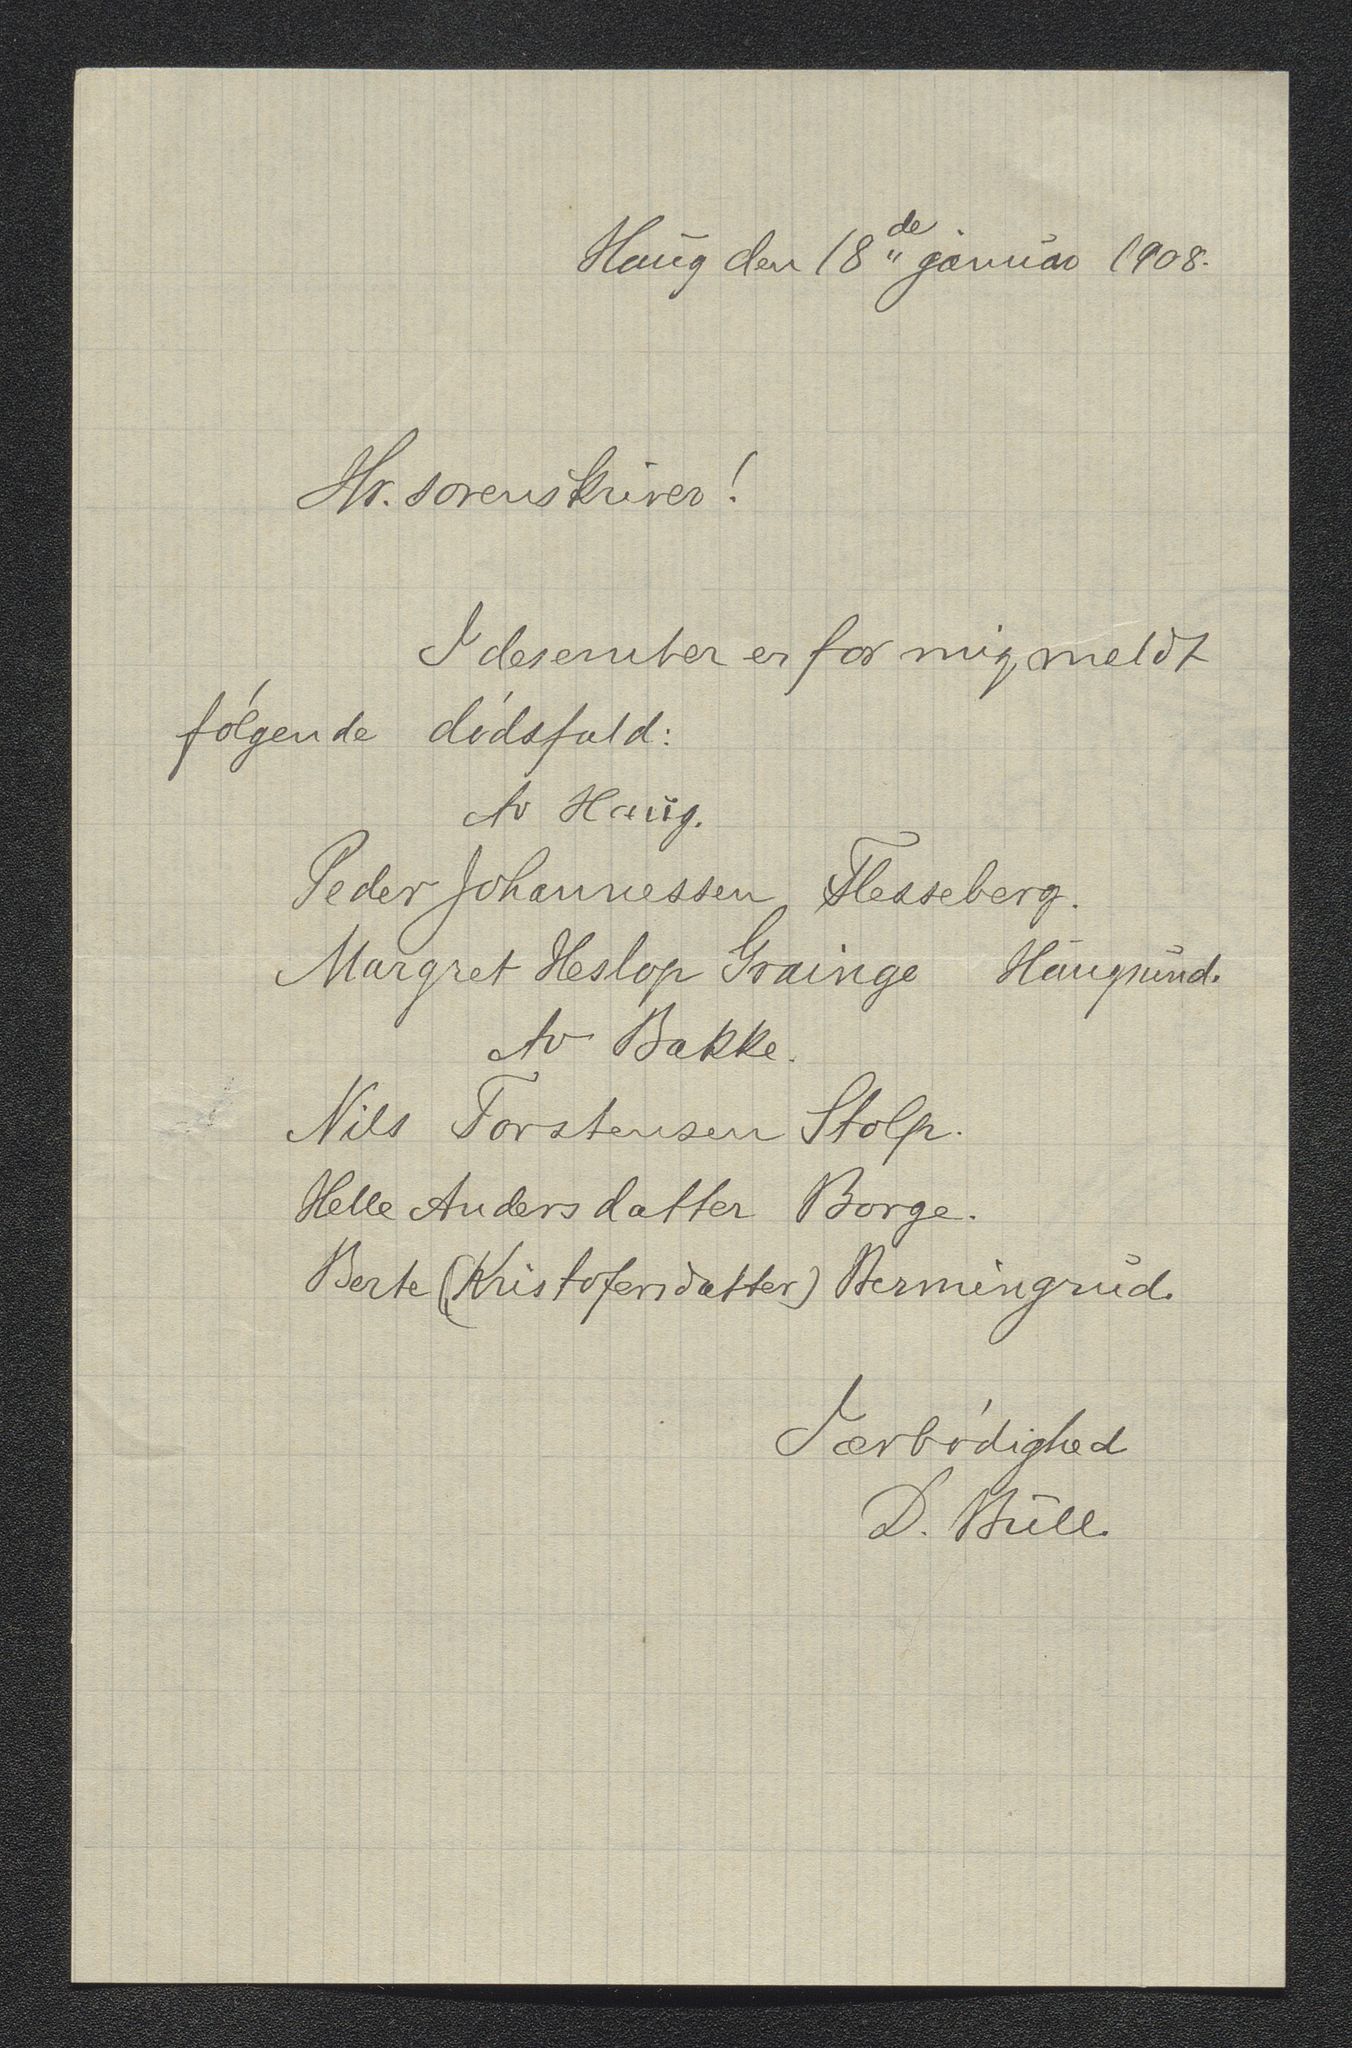 Haug den 18de januar 1908.
Hr. sorenskriver!
I desember er for mig meldt
følgende dødsfald:
Av Haug.
Peder Johannessen Flesseberg.
Margret Heslop Grainge Haugsund.
Av Bakke.
Nils Torstensen Stolp.
Helle Andersdatter Borge.
Berte (Kristofersdatter) Bermingrud.
I ærbødighed
D. Bull.